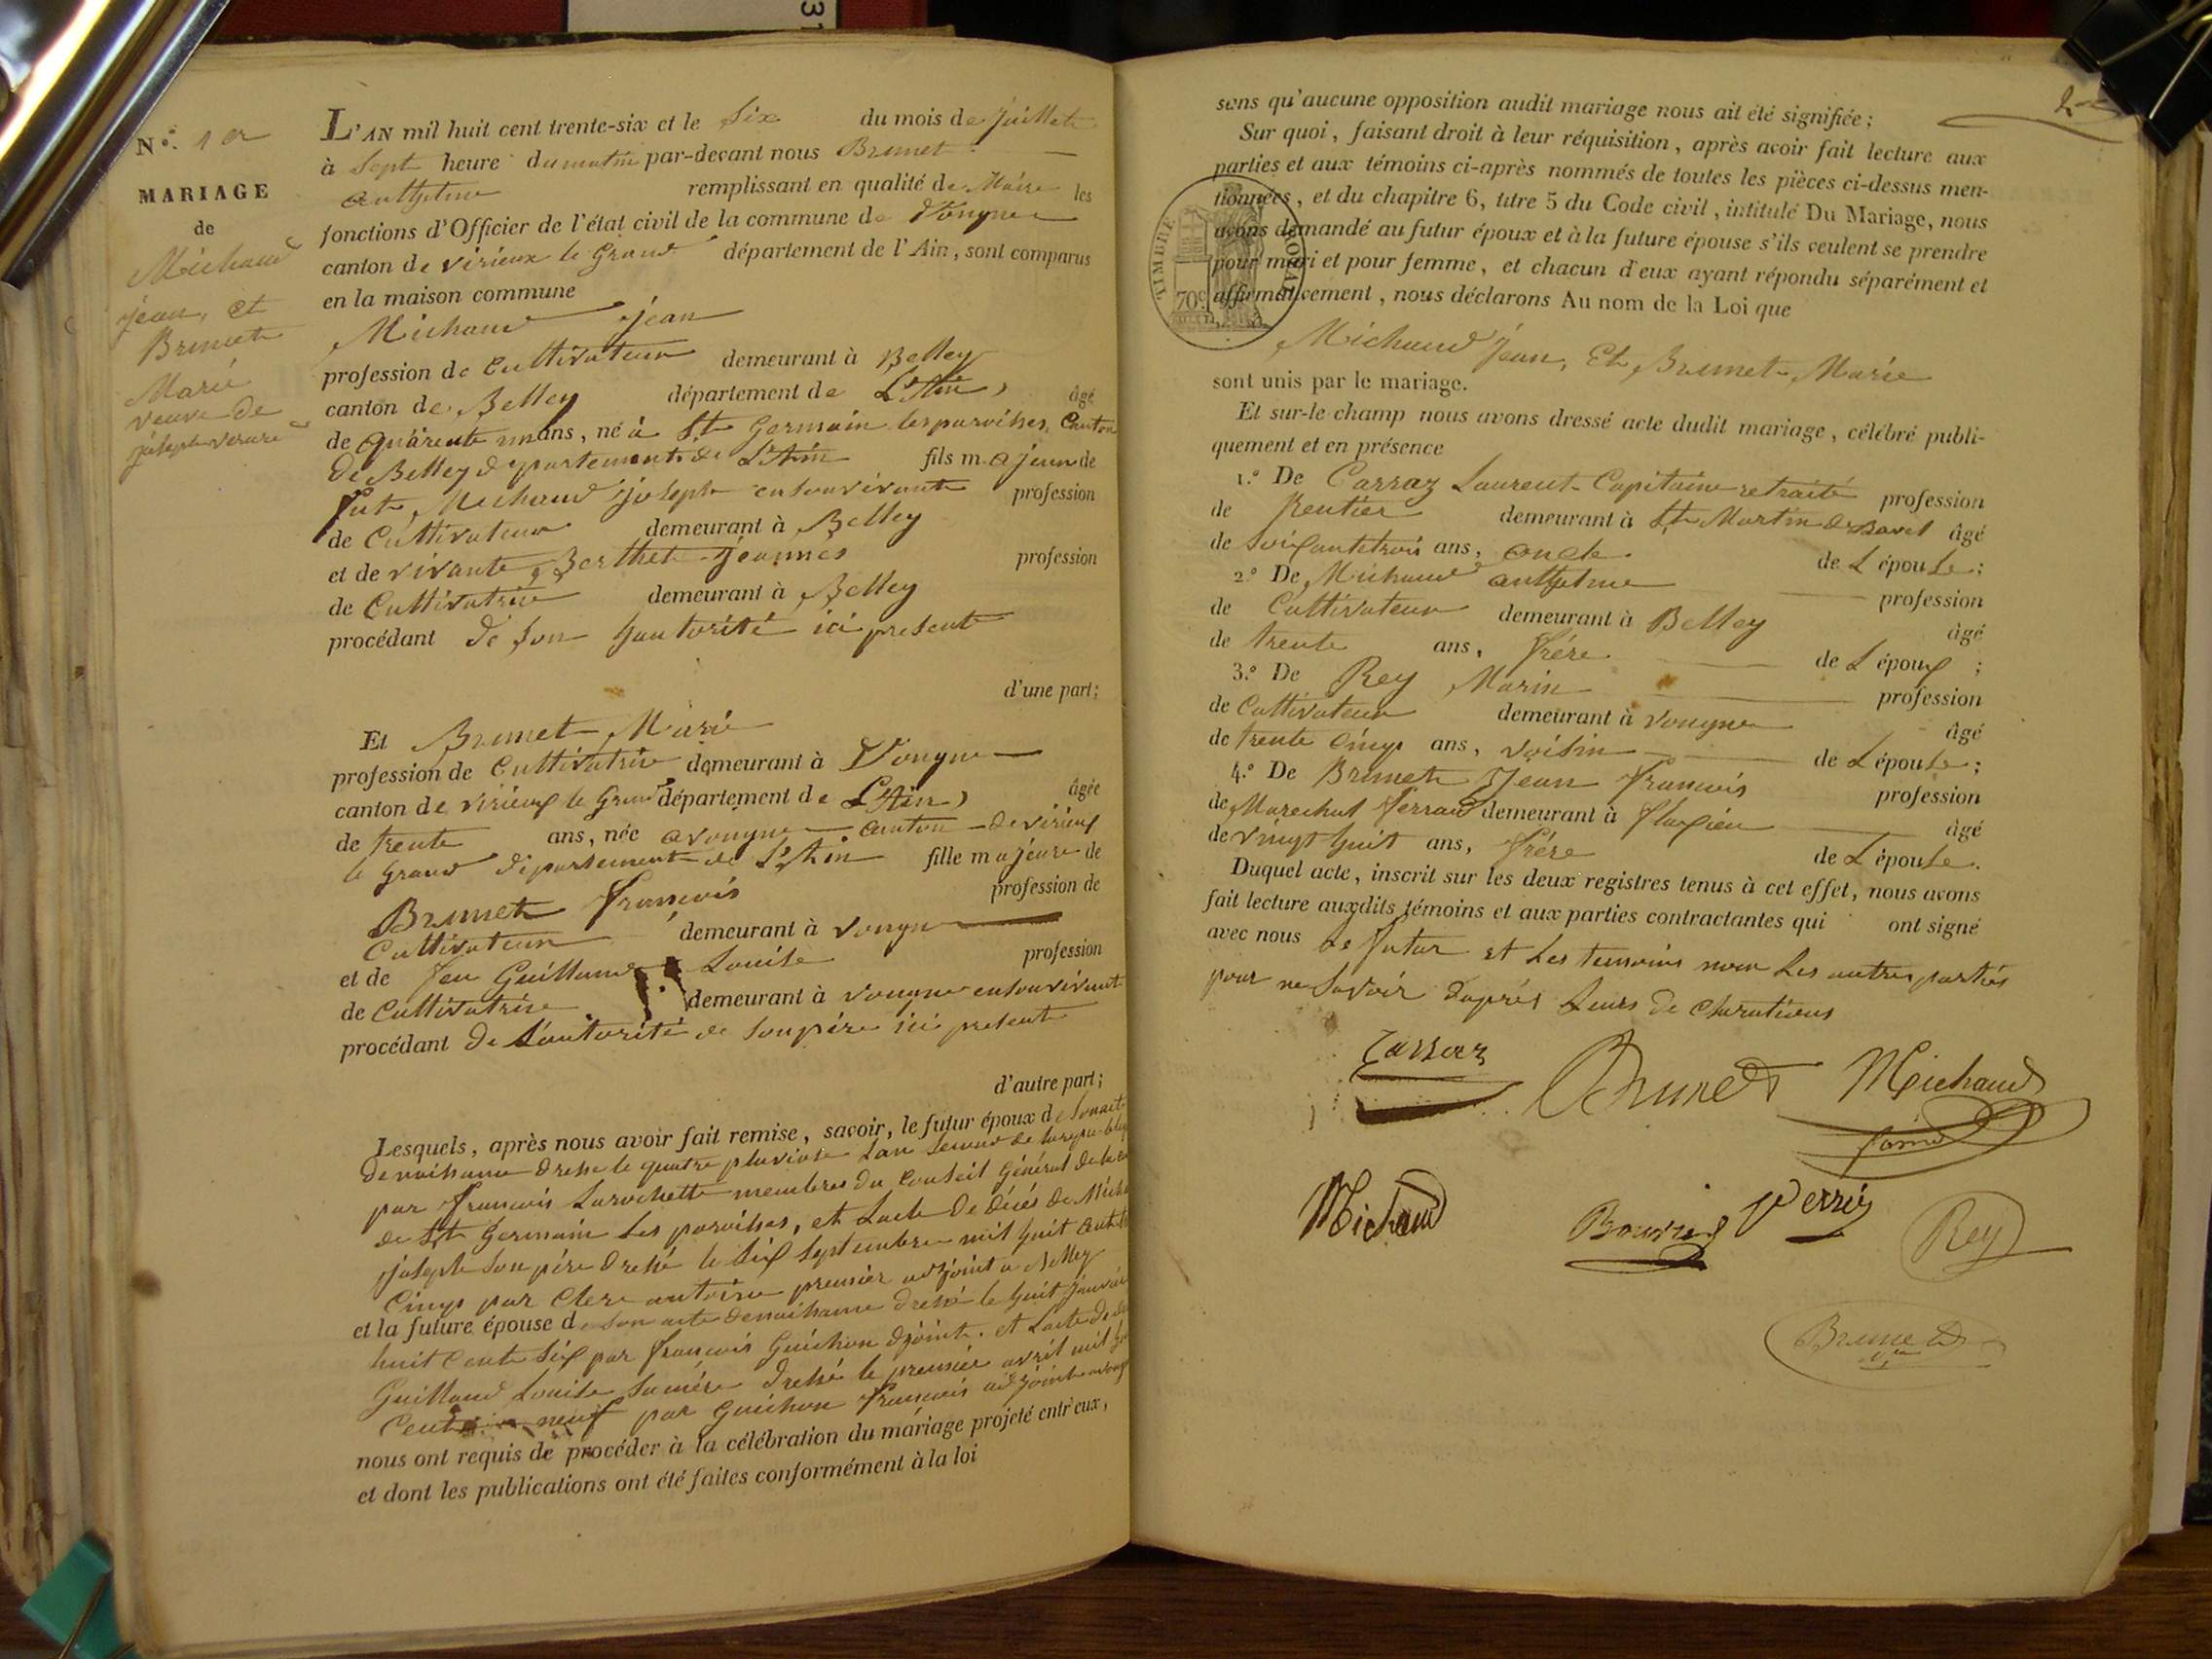 31
N.º 1er
MARIAGE
de
Michaud
jean, et
Brunet
Marie
veuve de
joseph
L'AN mil huit cent trente-six et le Six du mois de juillet
à Sept heure du matin par-devant nous Brunet
anthelme remplissant en qualité de Maire les
fonctions d'Officier de l'état civil de la commune de Vongne
canton de virieux le Grand département de l'Ain, sont comparus
en la maison commune
Michaud jean
profession de Cultivateur demeurant à Belley
canton de Belley département de L'Ain, âgé
de quarente un ans, né à St Germain les paroisses, Canton
de Belley departement de L'Ain fils majeur de
fut Michaud joseph ensonvivant profession
de Cultivateur demeurant à Belley
et de vivante Berthet jeannes profession
de Cultivatrice demeurant à Belley
procédant de son hautorité ici present
d'une part;
Et Brunet Marie
profession de Cultivatrice demeurant à Vongne
canton de virieux le Grand département de L'Ain, âgée
de trente ans, née a vongne canton de virieux
le Grand département de L'Ain fille majeure de
Brunet françois profession de
Cultivateur demeurant à vongne
et de feu Guilland Louise profession
de Cultivatrice demeurant à vongne ensonvivant
procédant de L'autorité de Sonpére ici present
d'autre part;
Lesquels, après nous avoir fait remise, savoir, le futur époux de Sonact
de naissance dressé le quatre pluviose Lan Second de
par françois Larochette membres du Conseil Général de la
de St Germain Les paroisses, et Lacte de décés de
joseph Son pére dressé le Six Septembre mil huit Cent
Cinq par Clerc antoine premier adjoint a Belley
et la future épouse de son acte denaissance dressé le huit janvier
huit Cent Six par françois Guichon adjoint. et Lacte de
Guilland Louise Samére dressé le premier avril mil
Cent neuf par Guichon françois adjoint
nous ont requis de procéder à la célébration du mariage projeté entr'eux,
et dont les publications ont été faites conformément à la loi
sans qu'aucune opposition audit mariage nous ait été signifiée;
Sur quoi, faisant droit à leur réquisition, après avoir fait lecture aux
parties et aux témoins ci-après nommés de toutes les pièces ci-dessus men-
tionnées, et du chapitre 6, titre 5 du Code civil, intitulé Du Mariage, nous
avons demandé au futur époux et à la future épouse s'ils veulent se prendre
pour mari et pour femme, et chacun d'eux ayant répondu séparément et
affirmativement, nous déclarons Au nom de la Loi que
TIMBRE ROYAL
70c
Michaud Jean, Et Brunet Marie
sont unis par le mariage.
Et sur-le champ nous avons dressé acte dudit mariage, célébré publi-
quement et en présence
1.º De Carraz Laurent Capitaine retraité profession
de Rentier demeurant à St Martin de Bavel âgé
de Soixantetrois ans, oncle de L'épouse;
2.º De Michaud anthelme profession
de Cultivateur demeurant à Belley âgé
de trente ans, frére de L'époux;
3.º De Rey Marin profession
de Cultivateur demeurant à vongne âgé
de trente Cinq ans, voisin de L'épouse;
4.º De Brunet Jean françois profession
de Marechal ferrand demeurant à flaxieu âgé
de vingt huit ans, frére de L'épouse.
Duquel acte, inscrit sur les deux registres tenus à cet effet, nous avons
fait lecture auxdits témoins et aux parties contractantes qui ont signé
avec nous Le futur et Les temoins non Les autres parties
pour ne Savoir daprés Leurs de Claratiens
Carraz
Brunet
Michaud
Michaud
Rey
Brunet